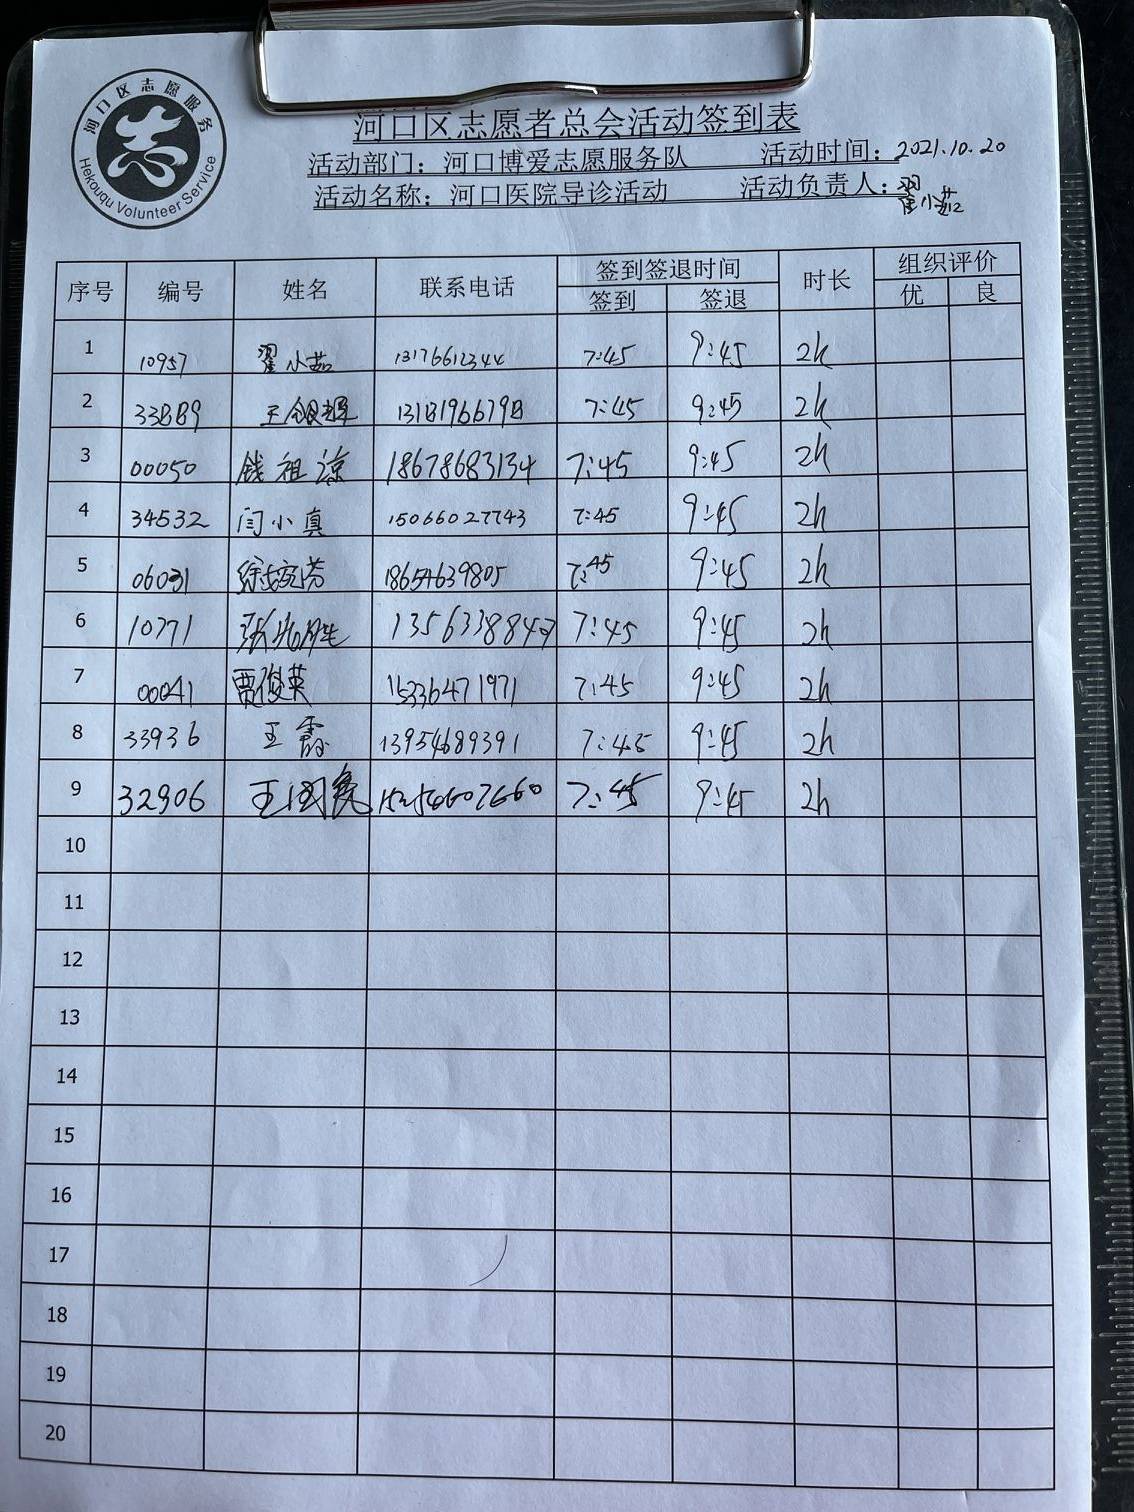 河口区志愿服务
志
Hekouqu Volunteer Service
河口区志愿者总会活动签到表
活动部门：河口博爱志愿服务队 活动时间：2021.10.20
活动名称：河口医院导诊活动 活动负责人：翟小茹
序号 编号 姓名 联系电话 签到签退时间 时长 组织评价
签到 签退 优 良
1 10957 翟小茹 13176612344 7:45 9:45 2h
2 33889 王 13181966798 7:45 9:45 2h
3 00050 钱祖凉 18678683134 7:45 9:45 2h
4 34532 闫小真 15066027743 7:45 9:45 2h
5 06031 18654639805 7:45 9:45 2h
6 10771 张兆胜 7:45 9:45 2h
7 00041 贾俊英 15336471971 7:45 9:45 2h
8 33936 王霞 13954689391 7:45 9:45 2h
9 32906 王国亮 15254607660 7:45 9:45 2h
10
11
12
13
14
15
16
17
18
19
20